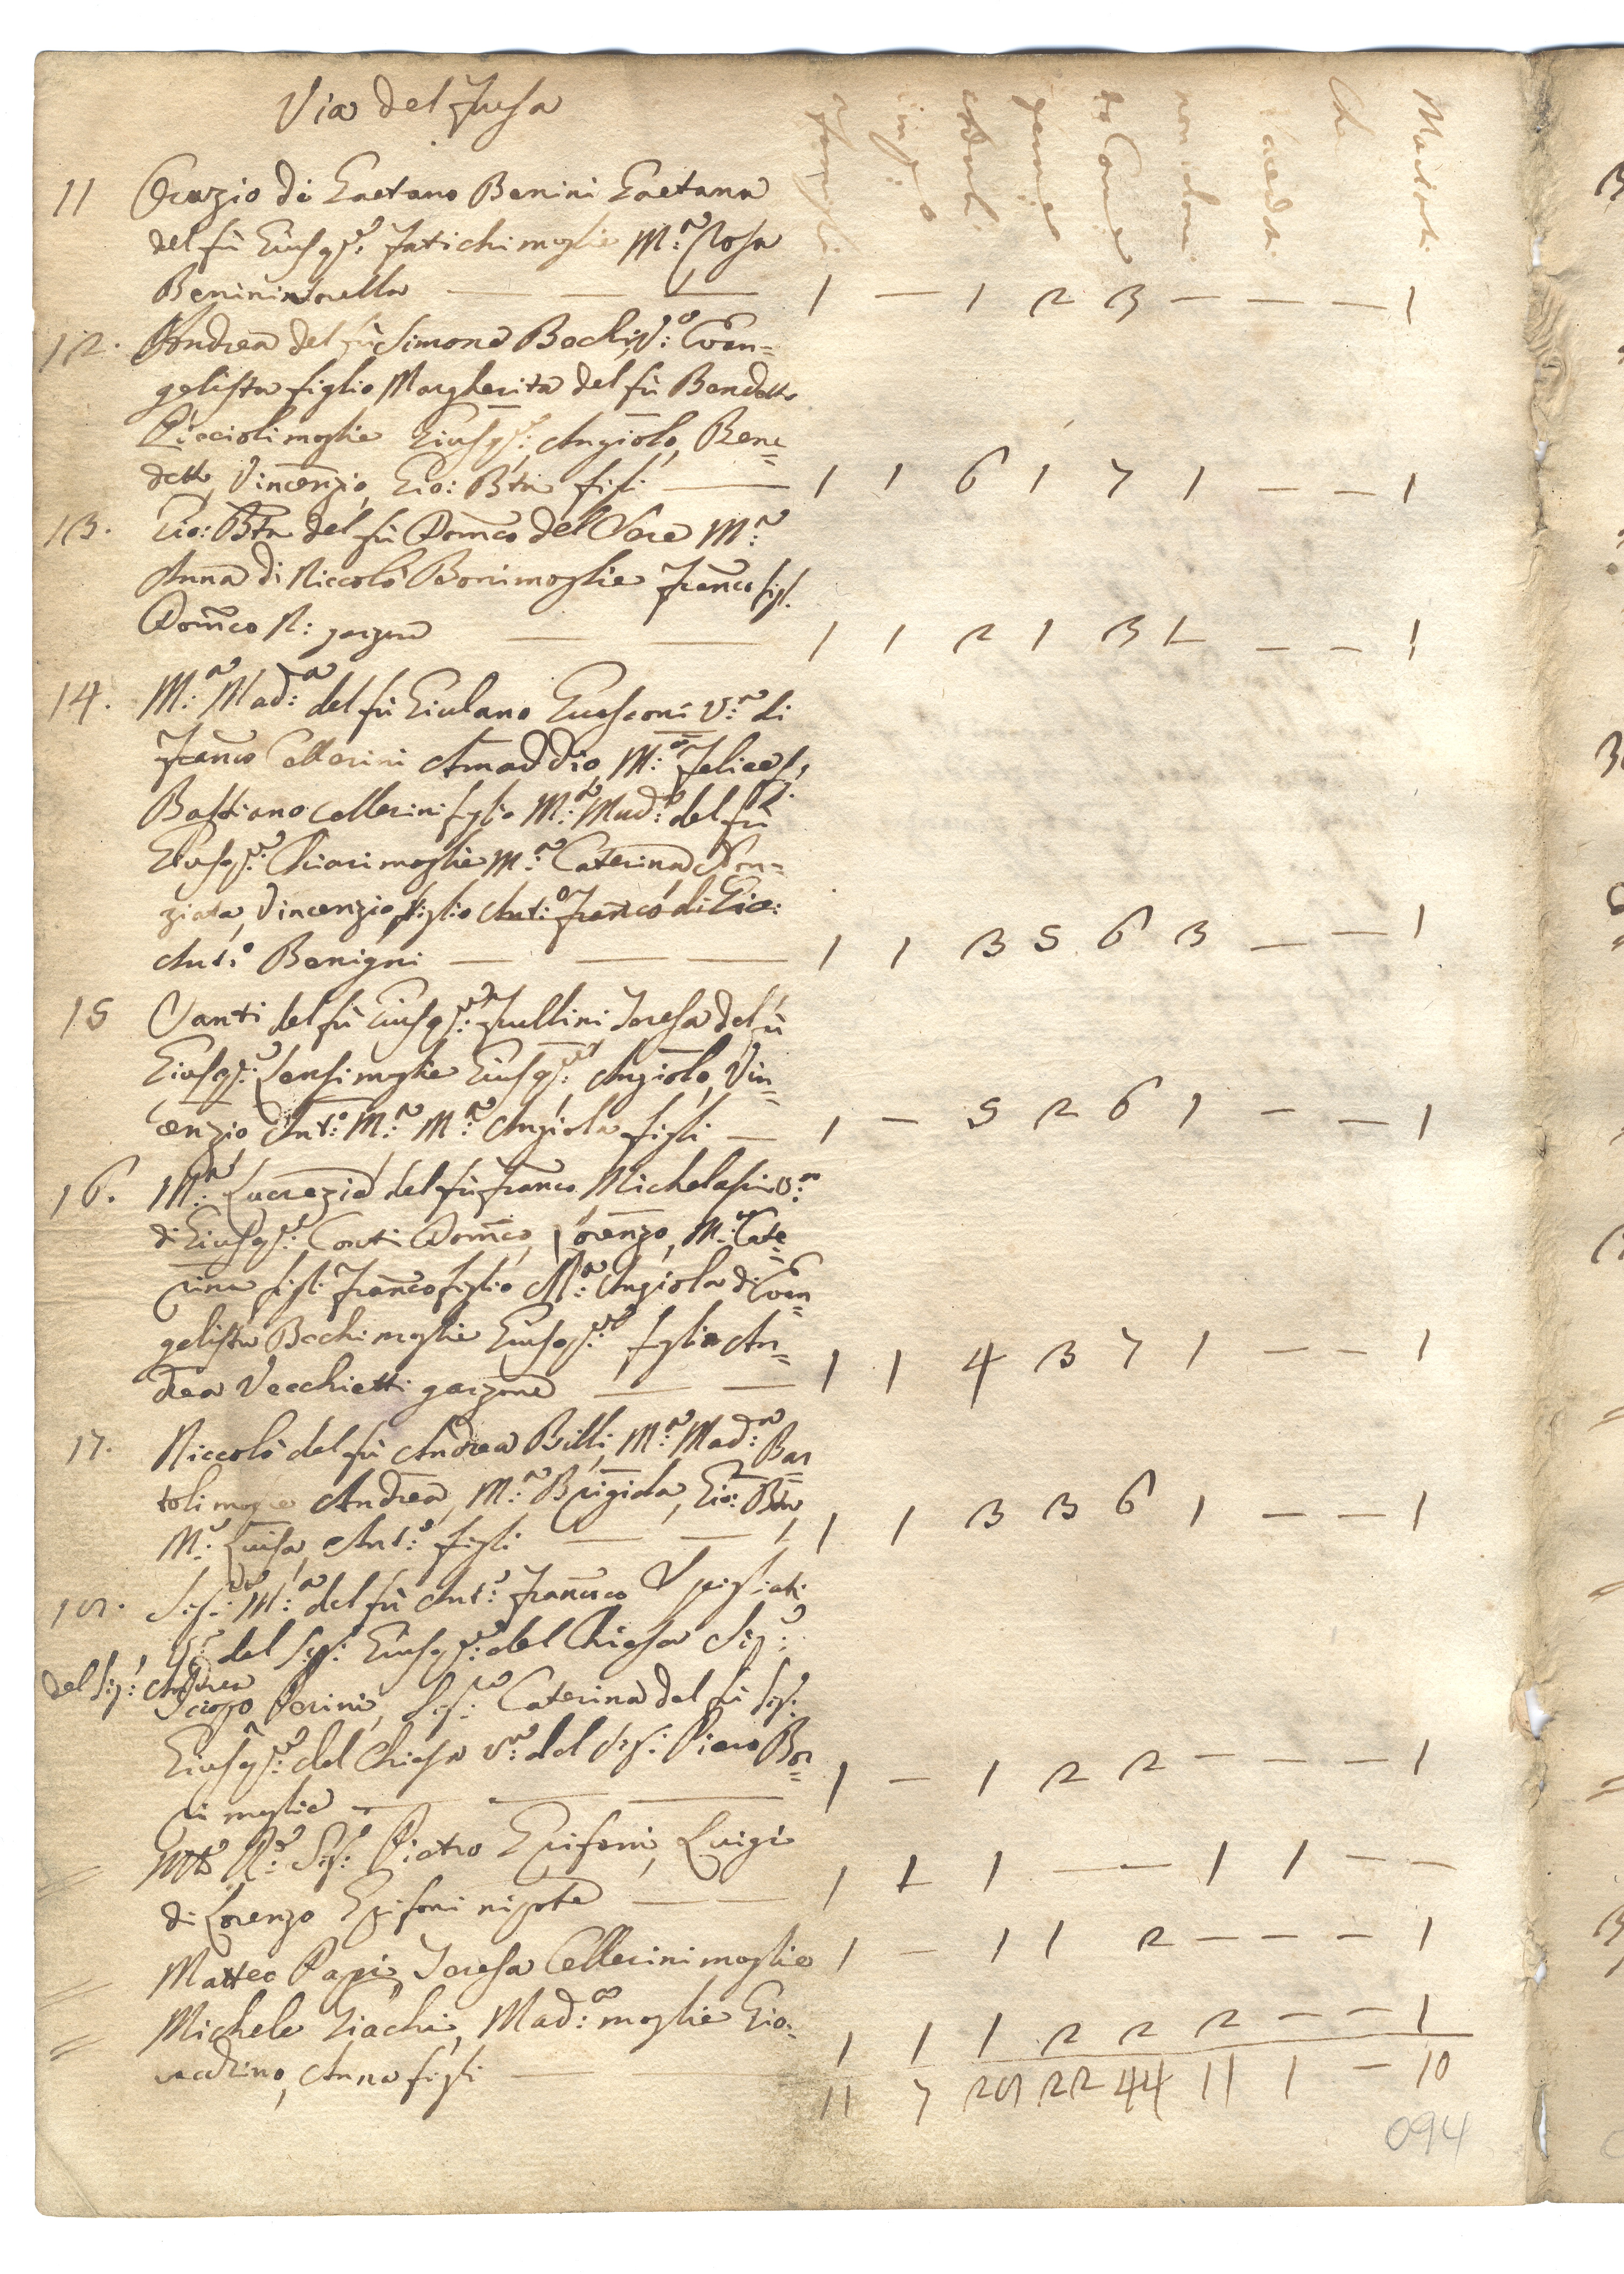 Via del Fusa
famiglie
maschi
femmine
non com:
Sacerdoti
Mariti
11 Orazio di Gaetano Benini Gaetana
del fù Gius.e Fatichi moglie M.a Rosa
Benini sorella — — — 1 — 1 2 3 — — — 1
12. Andrea del fù Simone Bochi, V.o Evan=
gelista figlio Margherita del fù Bendetto
Piccioli moglie Gius.e, Angiolo, Bene=
detto, Vincenzio, Gio: Bta figli — 1 1 6 1 7 1 — — 1
13. Gio: Bta del fù Dom̃co del Sere M.a
Anna di Niccolò Boni moglie Franco figl.
Dom̃co N: garzone — — 1 1 2 1 3 1 — — 1
14. M.a Mad.a del fù Giulano Guasconi V.a di
Franco Cellerini Amaddio, M.a Felice f.
Bastiano Cellerini figlio M.a Mad.a del fù
Gius.e Chiari moglie M.a Caterina Non=
ziata, Vincenzio figlio Ant.o Franco di Gio:
Ant.o Benigni — — — 1 1 3 5 6 3 — — 1
15 Santi del fù Gius.e Frullini Teresa del fù
Gius.e Sensi moglie Gius.e, Angiolo, Vin=
cenzio Ant.o M.a M.a Angiola figli — 1 — 5 2 6 1 — — 1
16. M.a Lucrezia del fù Franco Michelasi V.a
di Gius.e Conti Dom̃co, Lorenzo, M.a Cate=
rina figli Franco figlio M.a Angiola di Evan=
gelista Bochi moglie Gius.e figlio An=
drea Vecchietti garzone — — 1 1 4 3 7 1 — — 1
17. Niccolò del fù Andrea Billi, M.a Mad.a Bar=
toli moglie Andrea, M.a Brigida, Gio: Bta
M.a Luisa, Ant.o figli — — 1 1 3 3 6 1 — — 1
18. Sig.ra M.a del fù Ant.o Francesco Spigliati
del Sig: Gius.e del Chiesa Sig.
del Sig: Andrea
Perini, Sig.ra Caterina del fù Sig:
Gius.e del Chiesa V.a del Sig: Piero Bor=
ri moglie — — — 1 — 1 2 2 — — — 1
Mto R.o Sig: Pietro Epifani, Luigi
di Lorenzo Epifani nipote — — 1 1 1 — — 1 1 — —
Matteo Papi, Teresa Cellerini moglie 1 — 1 1 2 — — — 1
Michele Giachi, Mad.a moglie Gio=
vacchino, Anna figli — 1 1 1 2 2 2 — — 1
11 7 28 22 44 11 1 — 10
094